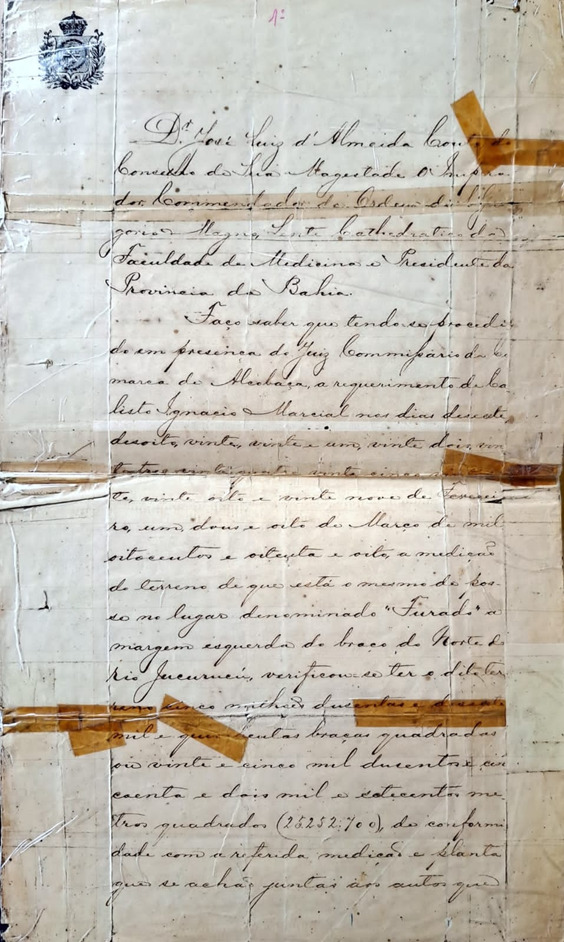 1º
Dr. José Luiz d'Almeida Couto do
Conselho de Sua Magestade O Impera
dor, Commendador da Ordem de São Gre
gorio Magno, Lente Cathedratico da
Faculdade de Medicina e Presidente da
Provincia da Bahia.
Faço saber que tendo-se procedi
do em presença do Juiz Commissario da Co
marca de Alcobaça, a requerimento de Ca
listo Ignacio Marcial nos dias desesete
desoito, vinte, vinte e um, vinte dois, vin
te e tres, vinte quatro, vinte cinco
te, vinte oito e vinte nove de Feverei
ro, um dous e oito de Março de mil
oitocentos e oitenta e oito, a medição
do terreno de que está o mesmo de pos-
se no lugar denominado "Furado" a
margem esquerda do braço do Norte do
rio Jucurucú, verificou-se ter o dito ter
reno cinco milhões dusentas e
mil e quinhentas braças quadradas
ou vinte e cinco mil dusentos e cin
coenta e dois mil e setecentos me
tros quadrados (25252:700), de conformi
dade com a referida medição e planta
que se achão juntas aos autos que